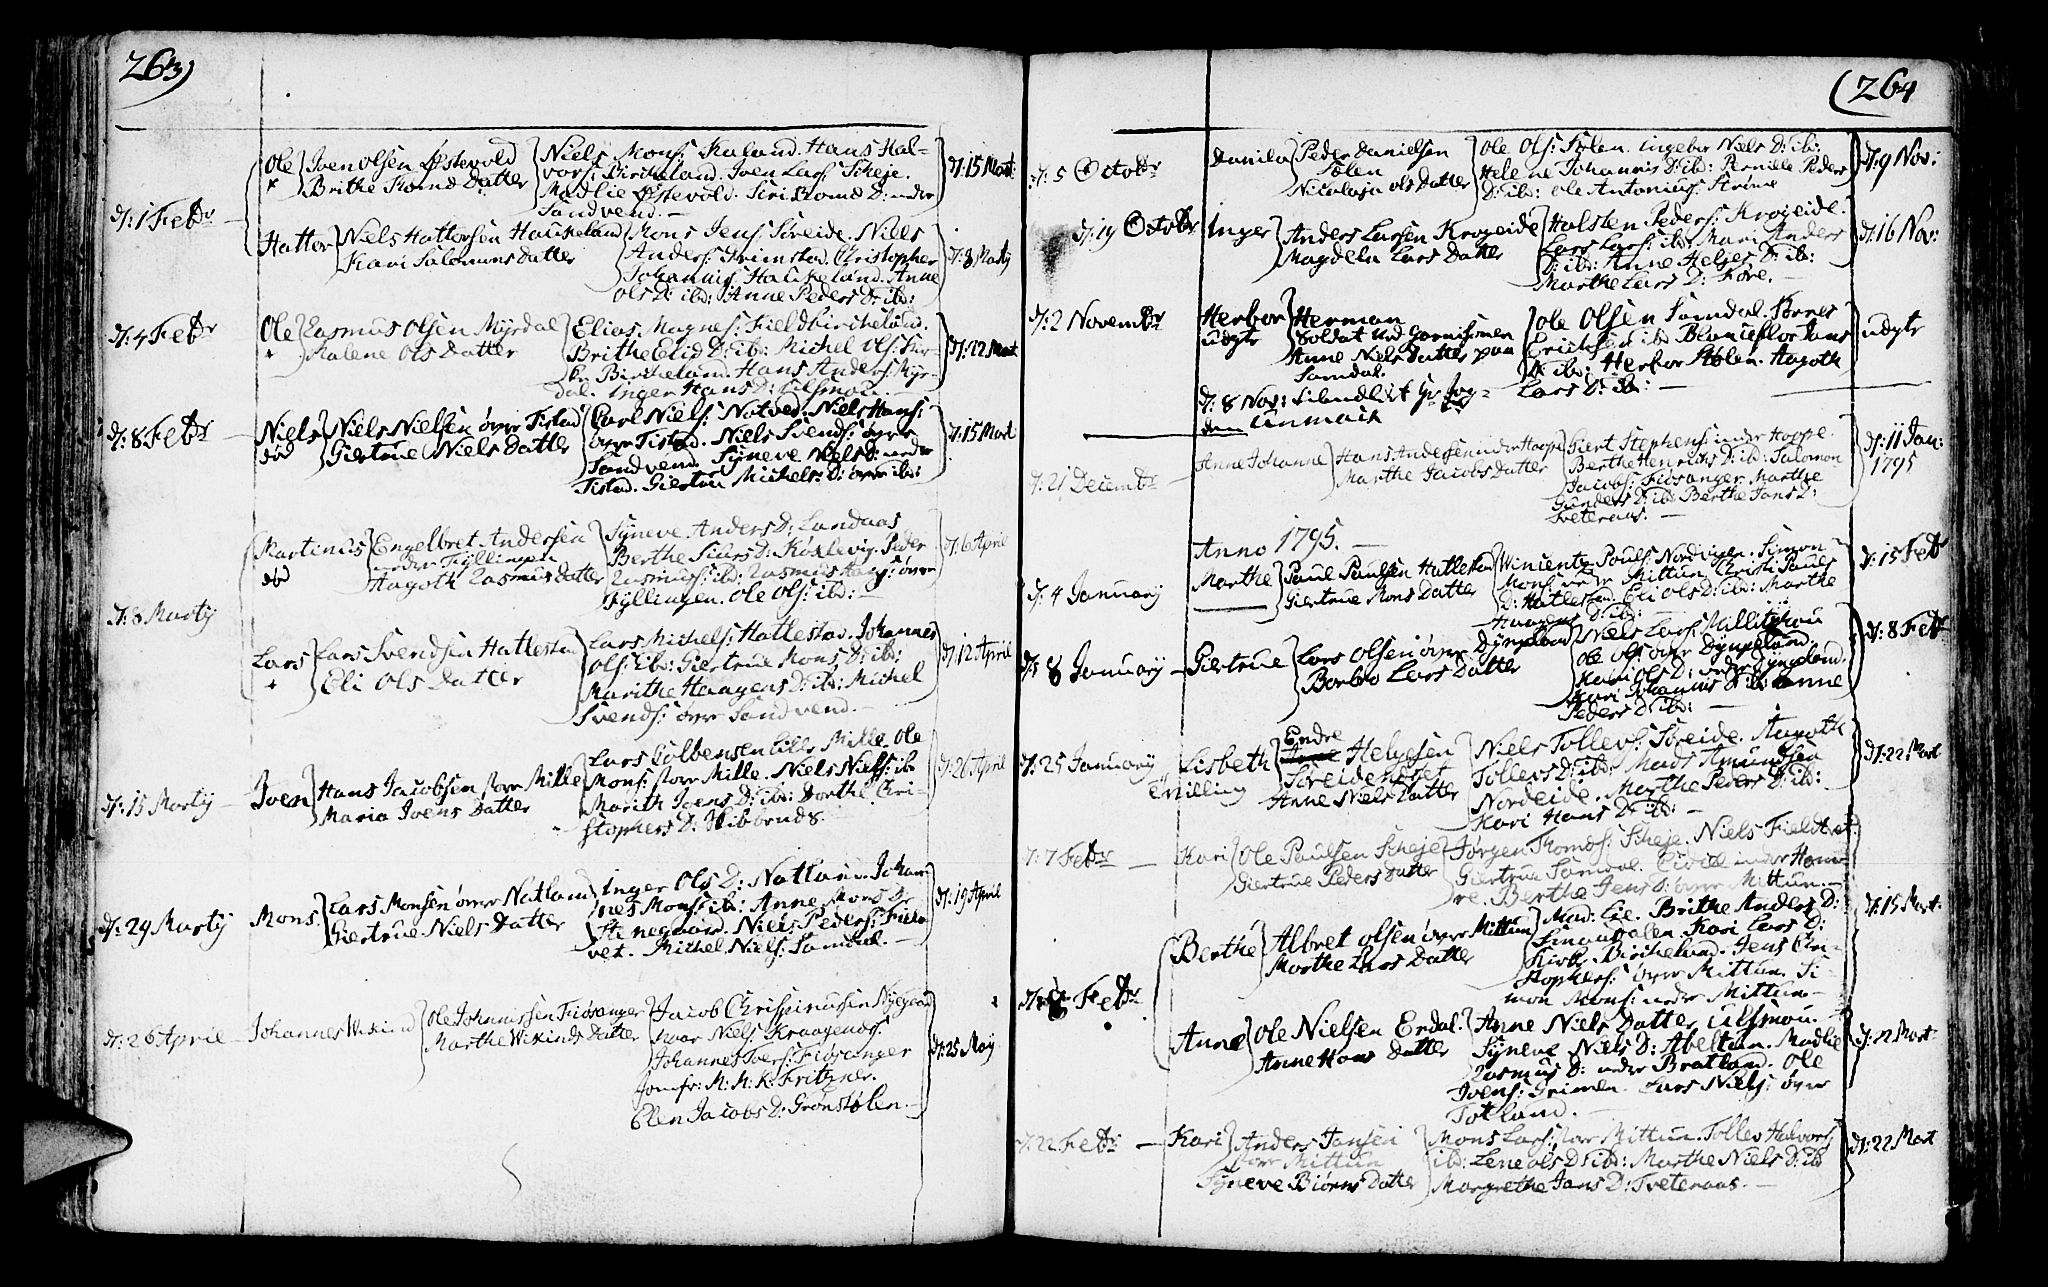 263)
d: 1 Febr
Ole
Joen Olsen Østeвold
Brithe Tomæ Datter
Niels Mons: Kaland. Hans Hal=
vors: Birkeland. Joen Lars: Scheje.
Madlie Østevold. Siri Tomæ D: neder
Sandvend. —
d: 15 Mart:
Hatter
Niels Hattersen Haukeland
Kari Salomons Datter
Mons Jens: Søreide. Niels
Anders: Grimstad. Christopher
Johannis: Haukeland. Anne
Ols D: ibd: Anne Peders D: ibd:
d: 8 Martij
d: 4 Febr
Ole
Rasmus Olsen Myrdal
Malene Ols Datter
Elias Magnes: Fieldbirkeland.
Brithe Elis D: ib: Michel Ols:
Birkeland. Hans Anders: Myr=
dal. Inger Hans D: Ulsmou. —
d: 22 Mart
d: 8 Febr —
Niels
død
Niels Nielsen øvre Tistad
Giertrue Niels Datter
Carl Niels: Natved. Niels Hans:
øvre Tistad. Niels Svends: øvre
Sandvend. Syneve Niels D: nedr
Tistad. Giertru Michels: D: øvre ib:
d: 15 Mart
d: 8 Martij
Martinus
død
Engelbret Andersen
neder Fyllingen
Aagoth Rasmus Datter
Syneve Anders D: Landaas
Berthe Siurs D: Køxlevig. Peder
Rasmus: ib: Rasmus Haag: øvre
Fyllingen. Ole Ols: ib: —
d: 6 April
Lars
Lars Svendsen Hattestad
Eli Ols Datter
Lars Michels: Hattestad. Johannes
Ols: ib: Giertrue Mons D: ib:
Marithe Haagens D: ib: Michel
Svends: øvre Sandvend. —
d: 12 April
d: 15 Martij —
Joen
Hans Jacobsen store Milde
Maria Joens Datter
Lars Colbensen Lille Milde. Ole
Mons: store Milde. Niels Niels: ib
Marith Joens D: ib: Dorthe Chri=
stophers D: Stibbends. —
d: 26 April
d: 29 Martij
Mons.
Lars Monsen øvre Natland
Giertrue Niels Datter
Inger Ols D: Natland. Johan=
nes Mons: ib: Anne Mons D:
Stenegaard. Niels Peders:
vet. Michel Niels: Samdal. —
d: 19 April
d: 26 April —
Johannes Wikind
Ole Johannssen Fiøsanger
Marthe Wikinds Datter
Jacob Chrispinusen Nygaard
Iwar Niels: Kraagenes.
Johannes Ivers: Fiøsanger
Jomfr: M. M. K. Fritzner.
Elen Jacobs D: Grønstølen. —
d: 25 Maij
(264
d: 5 Octobr
Danila
Peder Danielsen
Sælen
Nicolaja Ols Datter
Ole Ols: Sælen. Ingebor Niels D: ib:
Helene Johannis D: ib: Pernille Peders
D: ib: Ole Antonius: Strøme
d: 9 Nov:
d: 19 Octobr
Inger
Anders Larsen Krogeide
Magdela Lars Datter
Halsten Peders: Krogeide.
Lars Lars: ib: Mari Anders
D: ib: Anne Helges D: ib:
Marthe Lars D: Fore. —
d: 16 Nov:
d: 2 Novembr
Herbor
udgte
Herman
Soldat ved Garnisonen
Anne Niels Datter paa
Samdal.
Ole Olsen Samdal.
Erichsen ib: Blancheflor Jans
D: ib: Herbor Stølen. Aagoth
Lars D: ib: —
udgte
d: 8 Nov:
Anno 1795. —
d: 21 Decembr —
Anne Johanne
Hans Andersen nedre Hoppe
Marthe Jacobs Datter
Giert Stephens: nedre Hoppe.
Berthe Henrichs D: ib: Salomon
Jacobs: Fiøsanger. Marthe
Gunders D: ib: Berthe Jans D:
Tveteraas. —
d: 11 Jan:
1795
d: 4 Januarij
Marthe
Paul Paulsen Hattestad
Giertrue Mons Datter
Vincentz Pouls: Nordvigen. Simon
Mons: nedre Mittun. Christi Pauls
D: Hattestad. Eli Ols D: ib: Marthe
Haagens D: ib: —
d: 15 Febr
d: 8 Januarij —
Giertrue
Lars Olsen øvre Dyngeland
Barbro Lars Datter
Niels Lars:
Ole Ols: øvre Dyngeland.
Kari Ols D: nedre Dyngeland.
Kari Johannis D: ib: Anne
Peders D: ib: —
d: 8 Febr
d: 25 Januarij
Lisbeth
Tvilling
Endre
Helgesen
Søreidenesset
Anne Niels Datter
Niels Tollevs: Søreide. Aagoth
Tollevs D: ib: Mads Amundsen
Nordeide. Marthe Peders D: ib:
Kari Hans D: ib: —
d: 22 Mart
d: 7 Febr —
Kari
Ole Paulsen Scheje
Giertrue Peders Datter
Jørgen Thomæs: Scheje. Niels Fieldtvet.
Giertrue Samdal.
re. Berthe Jens D: øvre Mittun. —
d: 15 Mart
Febr
Berthe
Albret Olsen øvre Mittun
Marthe Lars Datter
Mad: Lie. Brithe Anders D:
Smaadalen. Kari Lars D:
Kirk Birkeland. Jens Chri=
stophers: øvre Mittun. Si=
mon Mons: nedre Mittun —
Anne
Ole Nielsen Erdal.
Anne Hans Datter
Anne Niels Datter Ulsmou.
Syneve Niels D: Abeltun. Madlie
Rasmus D: nedre Bratland. Ole
Joens: Grimen. Lars Niels: øvre
Totland. —
d: 22 Mart
d: 22 Febr: —
Kari
Anders Jansen
store Mittun
Syneve Biørns Datter
Mons Lars: store Mittun. Tollev Halvors:
ib: Lene Ols D: ib: Marthe Niels D: ib
Margrethe Jans D: Tveteraas. —
d: 22 Mart